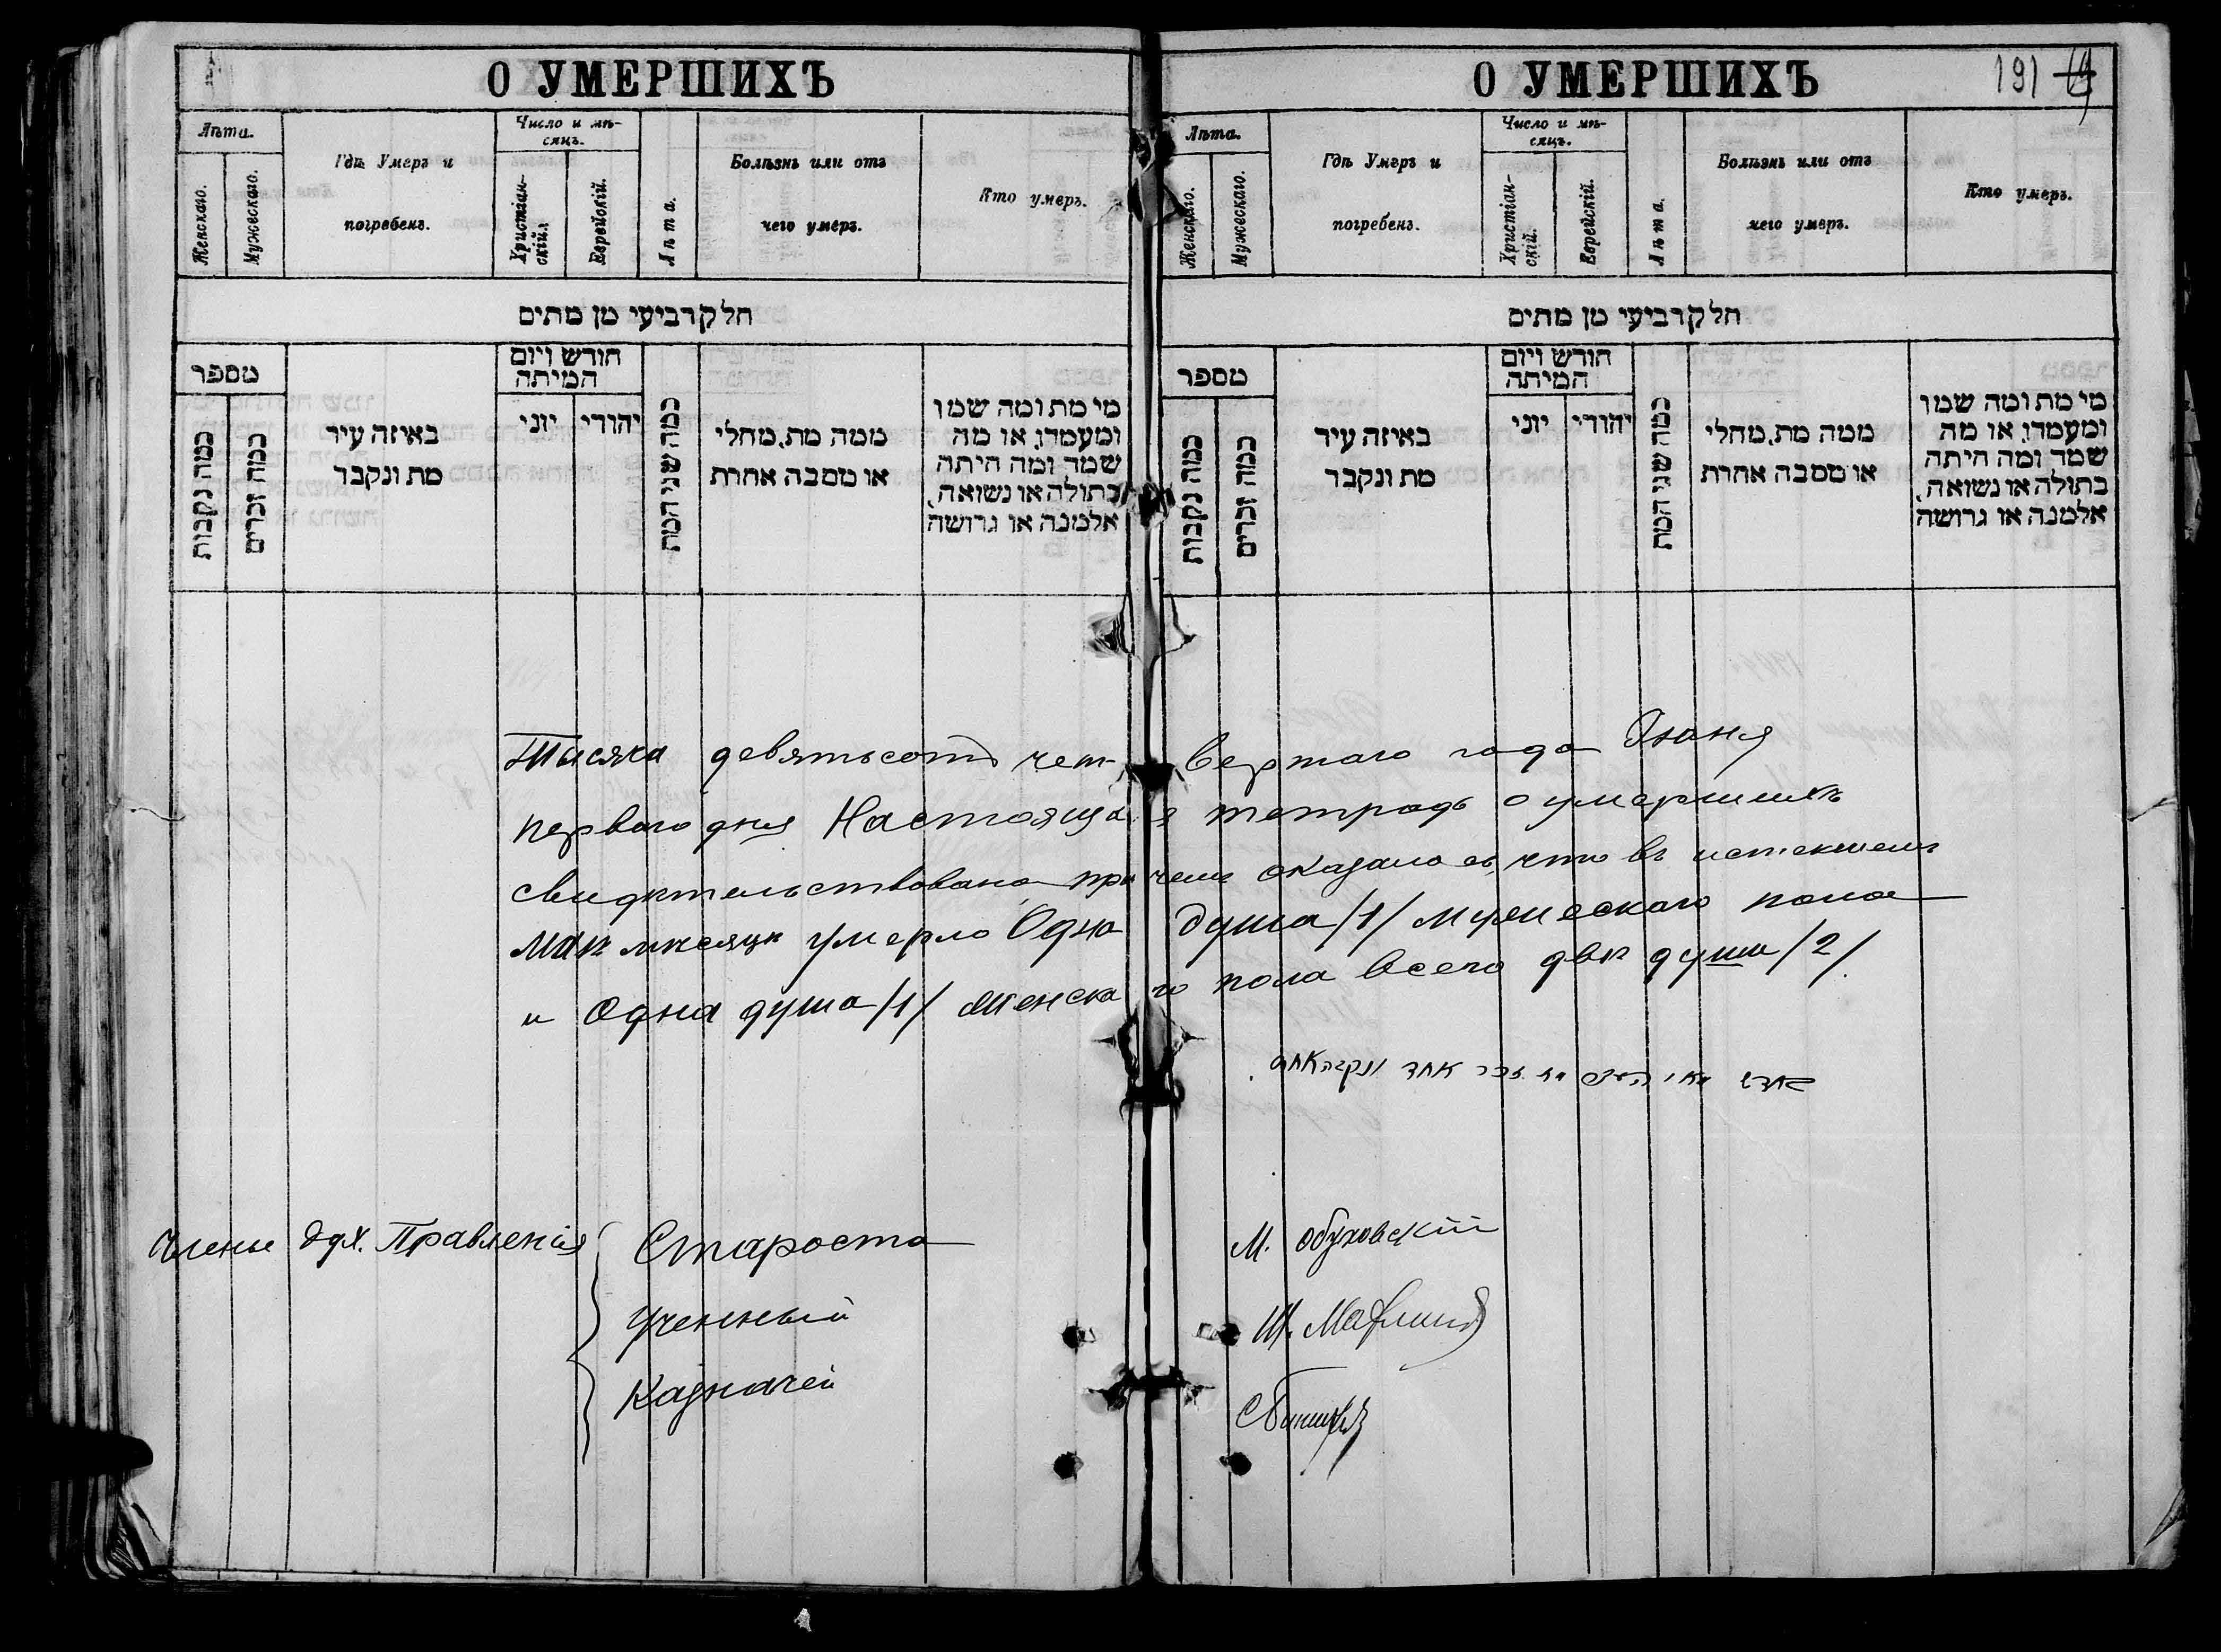 О УМЕРШИХЪ
Лѣта.
Женскаго.
Мужескаго.
Гдѣ Умеръ и
погребенъ.
Число и мѣ-
сяцъ.
Христіан-
скій.
Еврейскій.
Лѣта.
Болѣзнь или отъ
чего умеръ.
Кто умеръ.
חלק רביעי מן מתים
מספר
כמה נקבות
כמה זכרים
באיזה עיר
מת ונקבר
חודש ויום
המיתה
יוני
יהודי
כמה שני המת
ממה מת, מחלי
או מסבה אחרת
מי מת ומה שמו
ומעמדו, או מה
שמד ומה היתה
בתולה או נשואה,
אלמנה או גרושה
О УМЕРШИХЪ
191
Лѣта.
Женскаго.
Мужескаго.
Гдѣ Умеръ и
погребенъ.
Число и мѣ-
сяцъ.
Христіан-
скій.
Еврейскій.
Лѣта.
Болѣзнь или отъ
чего умеръ.
Кто умеръ.
חלק רביעי מן מתים
מספר
כמה נקבות
כמה זכרים
באיזה עיר
מת ונקבר
חודש ויום
המיתה
יוני
יהודי
כמה שני המת
ממה מת, מחלי
או מסבה אחרת
מי מת ומה שמו
ומעמדו, או מה
שמד ומה היתה
בתולה או נשואה,
אלמנה או גרושה
Тысяча девятьсотъ четвертаго года Іюня
перваго дня Настоящая тетрадь о умершихъ
свидѣтельствована причемъ оказалось, что въ истекшемъ
Маѣ мѣсяцѣ умерло Одна душа /1/ мужескаго пола
и Одна душа /1/ женскаго пола всего двѣ души /2/.
זכר אחד ונקבה אחת
Члены Дух. Правленія
Староста М. Обуховскій
Ученный Ш.
Казначей